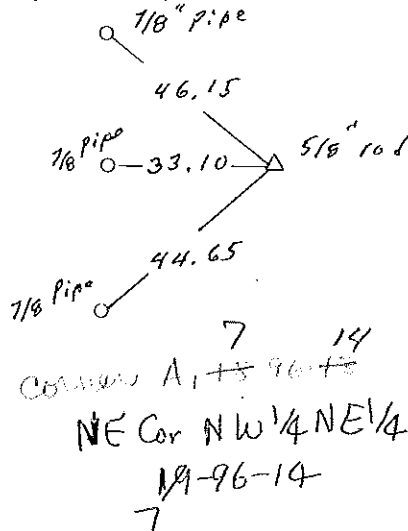 7/8" Pipe
46.15
7/8 Pipe
33.10
5/8" rod
44.65
7/8 Pipe
7 14
Corner A, 18 96-18
NE Cor NW 1/4 NE 1/4
19-96-14
7